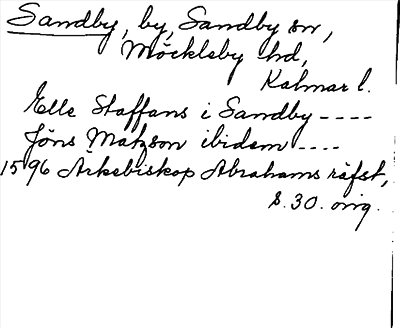 Sandby, by, Sandby sn,
Möckleby hd,
Kalmar l.
Elle Staffans i Sandby ----
Jöns Matzson ibidem ----
1596 Ärkebiskop Abrahams räfst,
s. 30. orig.